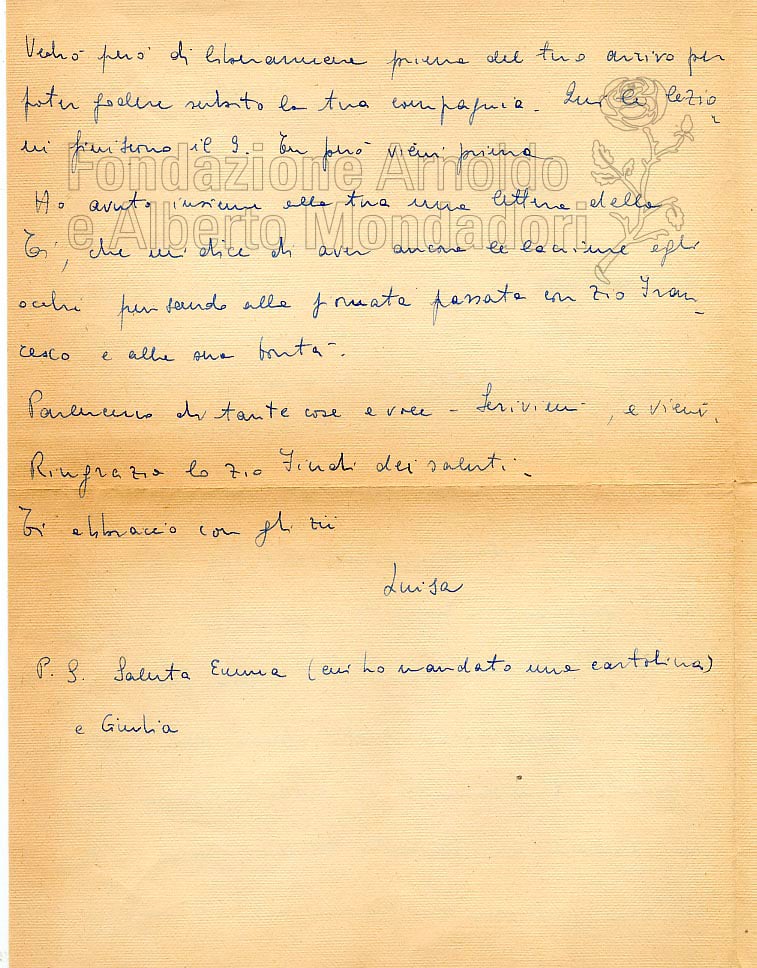 Vedrò però di liberarmene prima del tuo arrivo per
poter godere subito la tua compagnia. Qui le lezio-
ni finiscono il 9. Tu però vieni prima
Fondazione Arnoldo
e Alberto Mondadori
Ho avuto insieme alla tua una lettera della
Ti, che mi dice di aver ancora le lacrime agli
occhi pensando alla giornata passata con zio Fran-
cesco e alla sua bontà.
Parleremo di tante cose a voce - Scrivimi, e vieni.
Ringrazia lo zio dei saluti.
Ti abbraccio con gli zii
Luisa
P. S. Saluta Emma (cui ho mandato una cartolina)
e Giulia